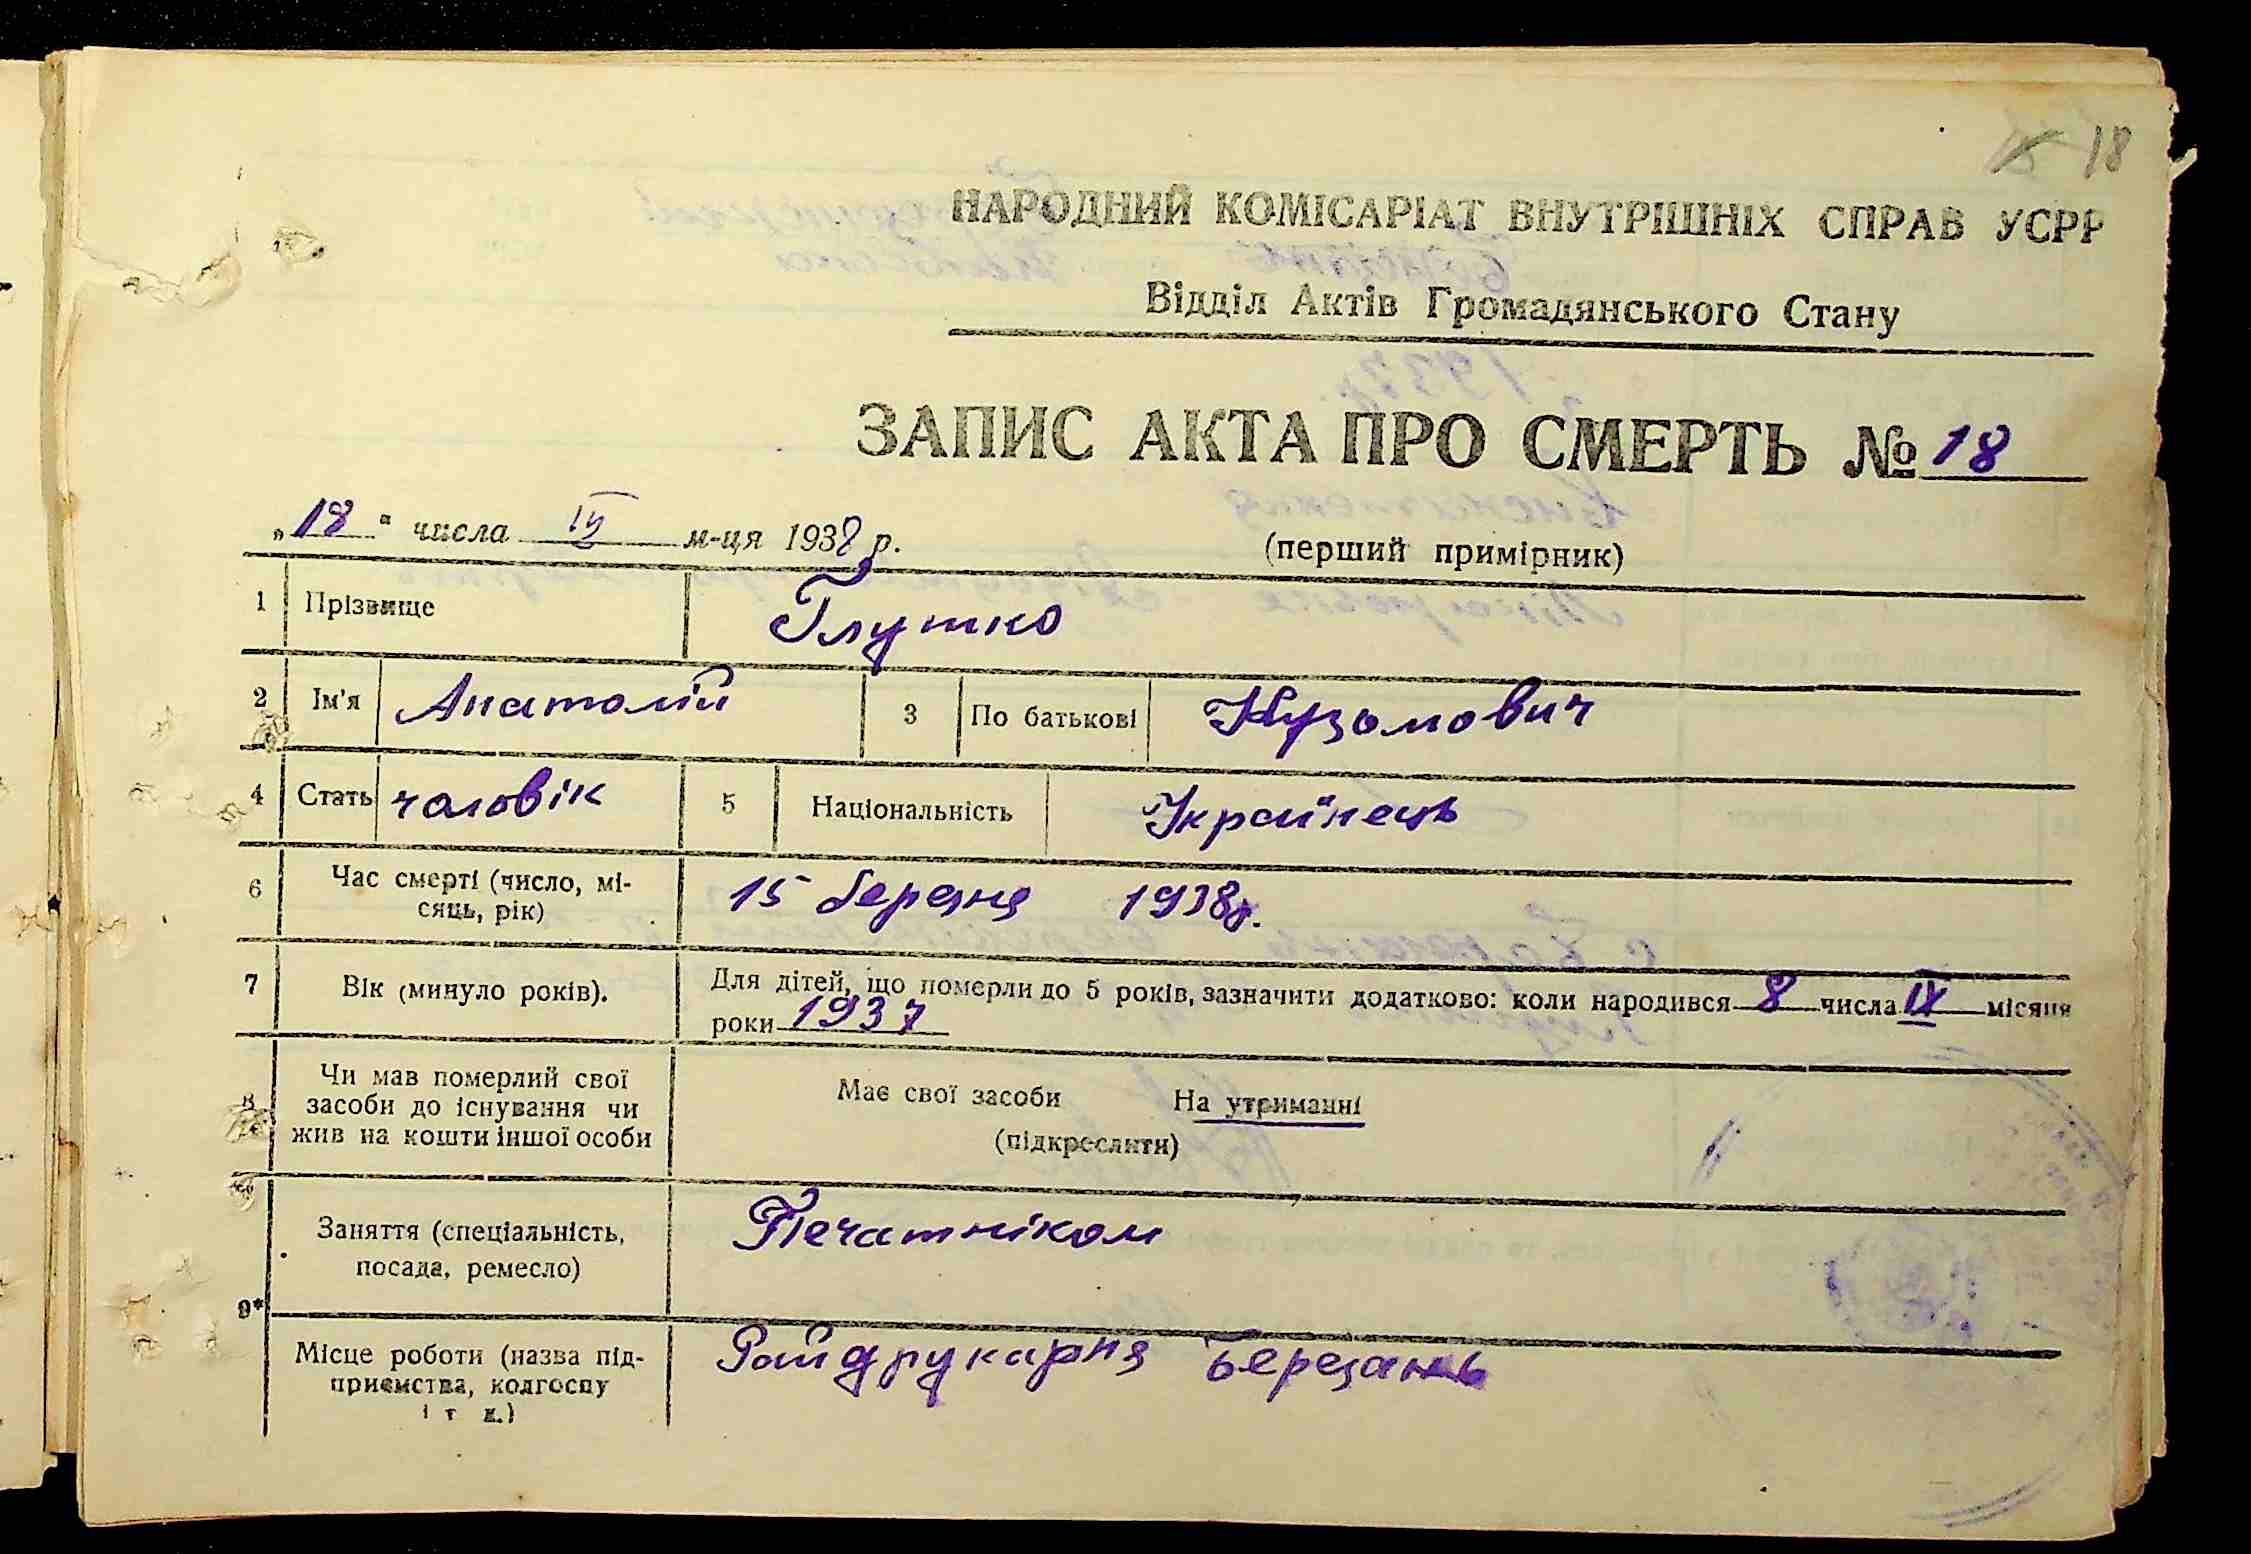 18
НАРОДНИЙ КОМІСАРІАТ ВНУТРІШНІХ СПРАВ УСРР
Відділ Актів Громадянського Стану
ЗАПИС АКТА ПРО СМЕРТЬ № 18
„18" числа IV м-ця 1938 р.
(перший примірник)
1 Прізвище Глушко
2 Ім'я Анатолій 3 По батькові Кузьмович
4 Стать чоловік 5 Національність Українець
6 Час смерті (число, мі-
сяць, рік) 15 березня 1938р.
7 Вік (минуло років). Для дітей, що померли до 5 років, зазначити додатково: коли народився 8 числа IX місяця
роки 1937
8 Чи мав померлий свої
засоби до існування чи
жив на кошти іншої особи
Має свої засоби На утриманні
(підкреслити)
Заняття (спеціальність,
посада, ремесло) Печатніком
9*
Місце роботи (назва під-
приємства, колгоспу
і т д.) Райдрукарня Березань